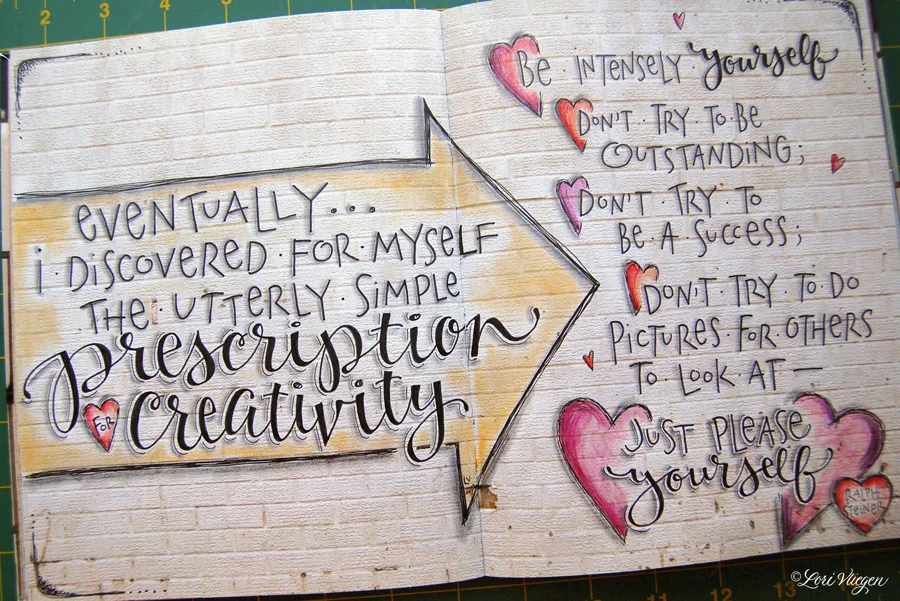 eventually...
i · discovered · for · myself
the · utterly · simple
prescription
for creativity
Be · intensely · yourself
Don't · try · to · be
outstanding;
Don't · try · to
be · a · success;
Don't · try · to · do
pictures · for · others
to · look · at —
just please
yourself
Ralph
Steiner
LV
©Lori Vliegen
2
3
4
5
6
7
12
13